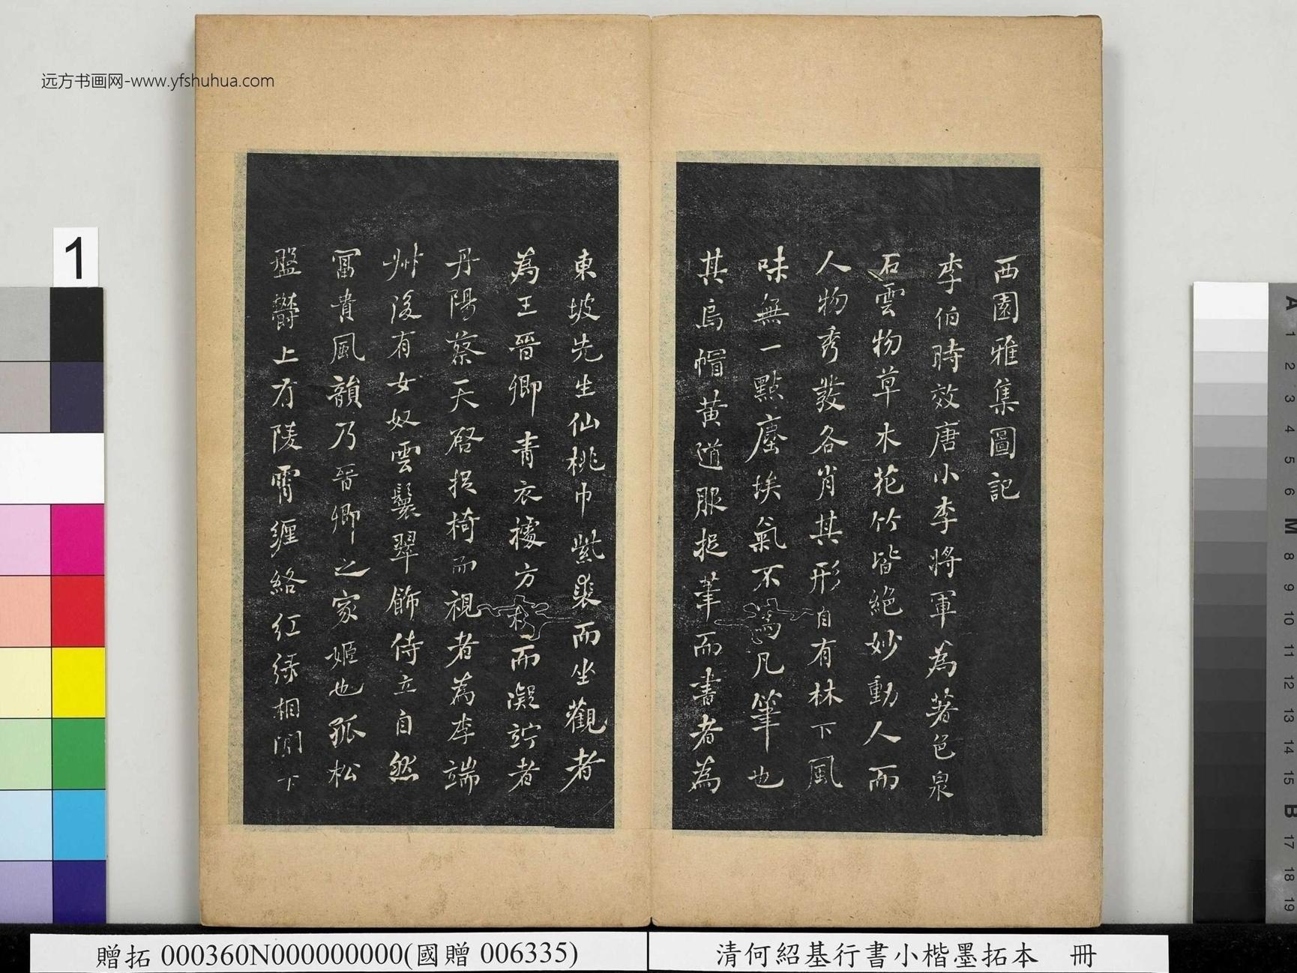 远方书画网-www.yfshuhua.com
西園雅集圖記
李伯時效唐小李將軍為著色泉
石雲物草木花竹皆絕妙動人而
人物秀發各肖其形自有林下風
味無一點塵埃氣不為凡筆也
其烏帽黃道服捉筆而書者為
東坡先生仙桃巾紫裘而坐觀者
為王晉卿青衣據方机而凝竚者
丹陽蔡天啓捉椅而視者為李端
州後有女奴雲鬟翠飾侍立自然
冨貴風韻乃晉卿之家姬也孤松
盤鬱上有陵霄纏絡紅綠相間下
1
A
1
2
3
4
5
6
M
8
9
10
11
12
13
14
15
B
17
18
19
贈拓 000360N000000000(國贈 006335)
清何紹基行書小楷墨拓本 冊